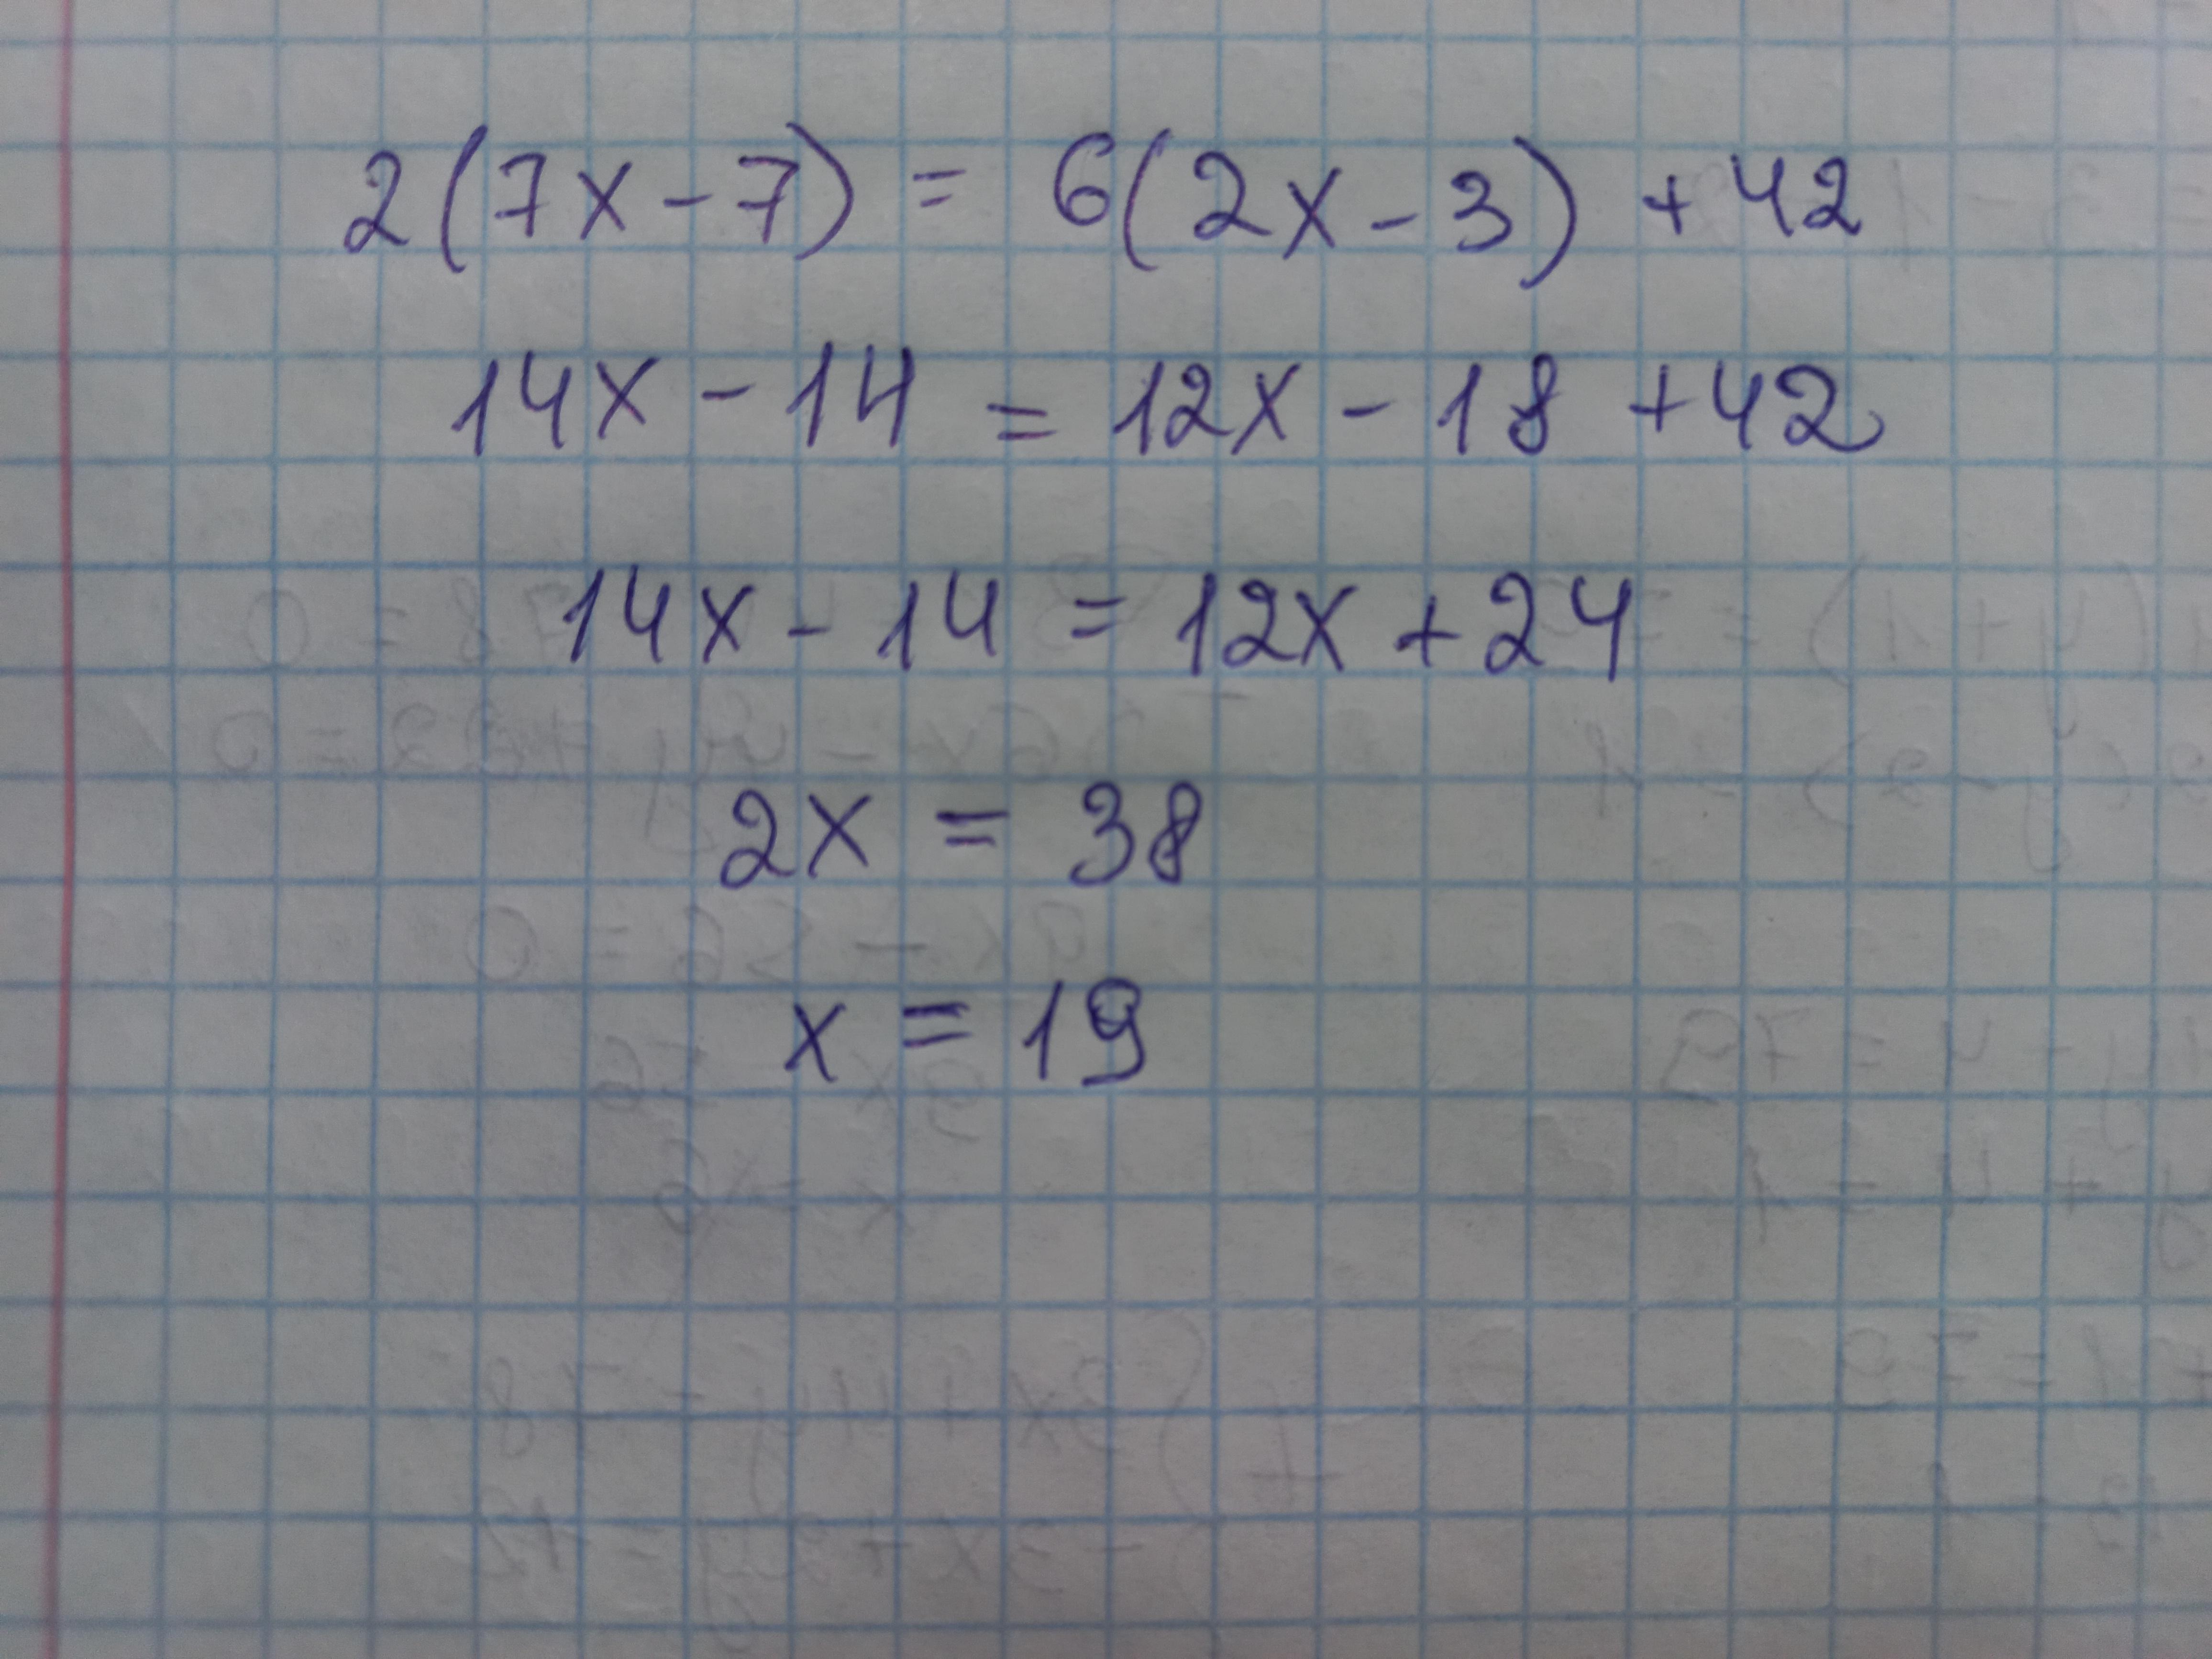 2(7x-7) = 6(2x-3) +42
14x - 14 = 12x - 18 +42
14x - 14 = 12x + 24
2x = 38
x = 19